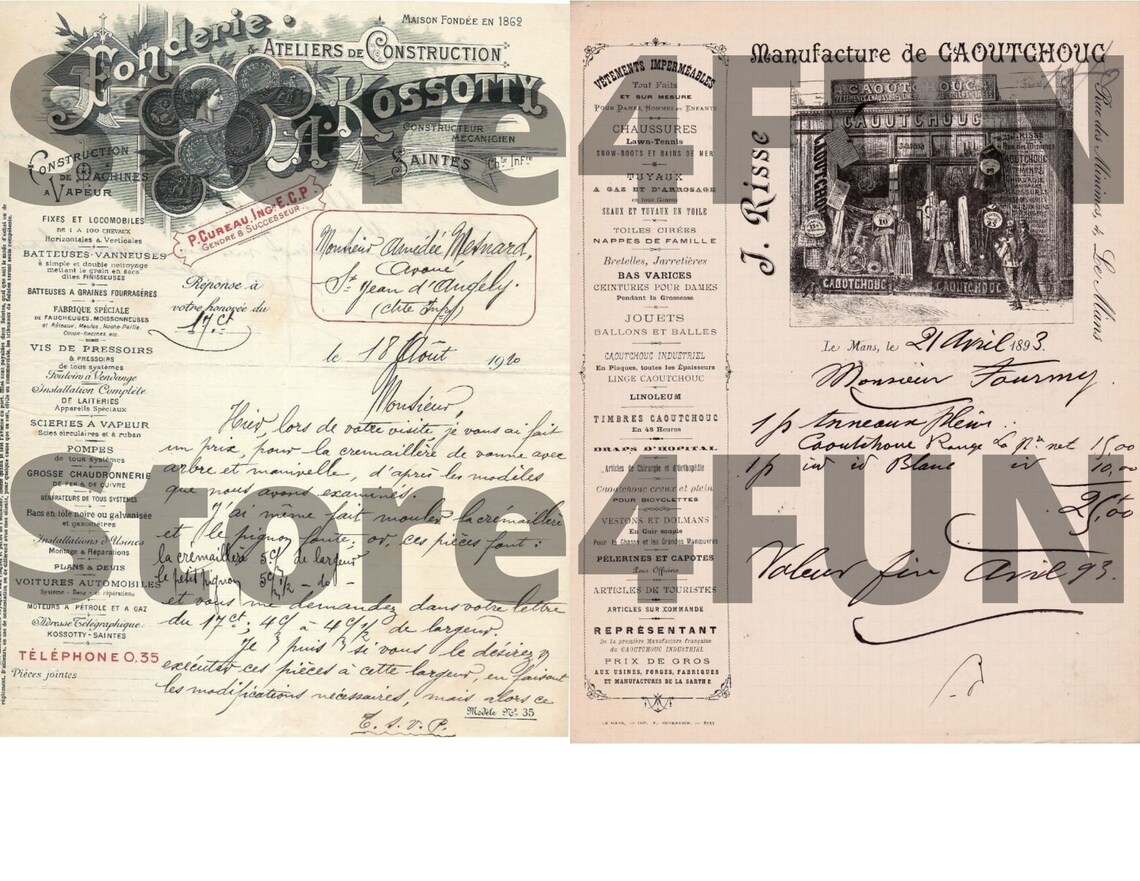 Maison Fondée en 1862
Fonderie
& Ateliers de Construction
A. Kossotty
Constructeur
Mécanicien
Saintes Chte Infre
Construction
de Machines
à Vapeur
P. Cureau, Ing. E.C.P.
Gendre & Successeur
FIXES ET LOCOMOBILES
DE 1 A 100 CHEVAUX
Horizontales & Verticales
BATTEUSES-VANNEUSES
à simple et double nettoyage
mettant le grain en sacs
dites FINISSEUSES
BATTEUSES A GRAINES FOURRAGÈRES
FABRIQUE SPÉCIALE
DE FAUCHEUSES, MOISSONNEUSES
et Râteaux, Meules, Hache-Paille
Coupe-Racines, etc.
VIS DE PRESSOIRS
& PRESSOIRS
de tous systèmes
Fouloirs à Vendange
Installation Complète
DE LAITERIES
Appareils Spéciaux
SCIERIES A VAPEUR
Scies circulaires et à ruban
POMPES
de tous systèmes
GROSSE CHAUDRONNERIE
DE FER & DE CUIVRE
GÉNÉRATEURS DE TOUS SYSTÈMES
Bacs en tôle noire ou galvanisée
et gazomètres
Installations d'Usines
Montage & Réparations
PLANS & DEVIS
VOITURES AUTOMOBILES
MOTEURS A PÉTROLE ET A GAZ
Adresse Télégraphique
KOSSOTTY-SAINTES
TÉLÉPHONE 0.35
Pièces jointes
Réponse à
votre honorée du
17 ct
Monsieur Amédée Mesnard,
Avoué
St Jean d'Angely.
(chte Infre)
le 18 Août 1920
Monsieur,
Hier, lors de votre visite je vous ai fait
un prix, pour la cremaillère de vanne avec
arbre et manivelle, d'après les modèles
que nous avons examinés.
J'ai même fait mouler la cremaillere
et le pignon fonte; or, ces pièces font:
la cremaillère 5 c/ de largeur
le petit pignon 5 c/ 1/2 - do -
et vous me demandez dans votre lettre
du 17 ct; 4 c/ à 4 c/ 1/2 de largeur.
Je puis si vous le desirez
executer ces pièces à cette largeur, en faisant
les modifications nécessaires, mais alors ce
Modèle No 35
T. S. V. P.
Manufacture de CAOUTCHOUC
J. Risse
Rue des Minimes, 4, Le Mans
CAOUTCHOUC
CAOUTCHOUC
CAOUTCHOUC
CAOUTCHOUC
CAOUTCHOUC
VÊTEMENTS IMPERMÉABLES
Tout Faits
ET SUR MESURE
Pour Dames, Hommes et Enfants
CHAUSSURES
Lawn-Tennis
SNOW-BOOTS ET BAINS DE MER
TUYAUX
A GAZ ET D'ARROSAGE
en tous Genres
SEAUX ET TUYAUX EN TOILE
TOILES CIRÉES
NAPPES DE FAMILLE
Bretelles, Jarretières
BAS VARICES
CEINTURES POUR DAMES
Pendant la Grossesse
JOUETS
BALLONS ET BALLES
CAOUTCHOUC INDUSTRIEL
En Plaques, toutes les Épaisseurs
LINGE CAOUTCHOUC
LINOLEUM
TIMBRES CAOUTCHOUC
En 48 Heures
DRAPS D'HOPITAL
Articles de Chirurgie et d'Orthopédie
Caoutchouc creux et plein
POUR BICYCLETTES
VESTONS ET DOLMANS
En Cuir souple
Pour la Chasse et les Grandes Manœuvres
PÈLERINES ET CAPOTES
Pour Officiers
ARTICLES DE TOURISTES
ARTICLES SUR COMMANDE
REPRÉSENTANT
De la première Manufacture française
du CAOUTCHOUC INDUSTRIEL
PRIX DE GROS
AUX USINES, FORGES, FABRIQUES
ET MANUFACTURES DE LA SARTHE
Le Mans, le 21 Avril 1893.
Monsieur Fourmy.
1 p Anneaux pleins
Caoutchouc Rouge La Pre net 15,00
1 p id id Blanc id 10,00
25,00
Valeur fin Avril 93.
Store4FUN
Store4FUN